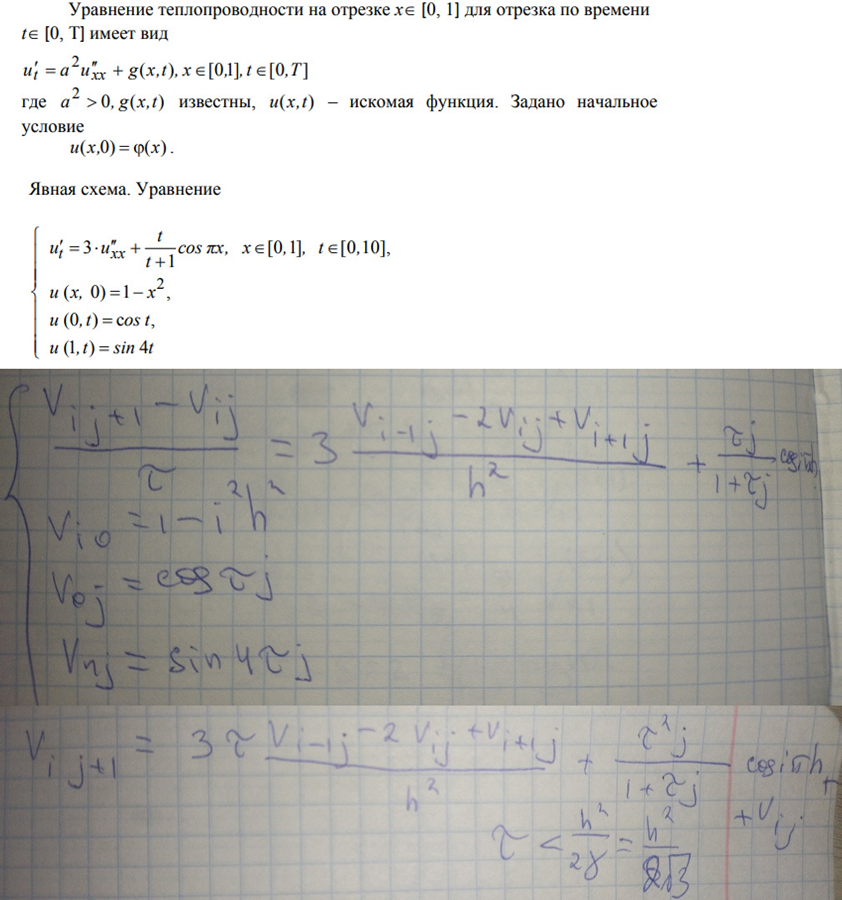 Уравнение теплопроводности на отрезке x∈ [0, 1] для отрезка по времени
t∈ [0, T] имеет вид
u′ₜ = a²u″ₓₓ + g(x,t), x ∈[0,1], t ∈[0,T]
где a² > 0, g(x,t) известны, u(x,t) – искомая функция. Задано начальное
условие
u(x,0) = φ(x).
Явная схема. Уравнение
u′ₜ = 3·u″ₓₓ + t/(t+1) cos πx, x∈[0,1], t∈[0,10],
u (x, 0) = 1 − x²,
u (0,t) = cos t,
u (1,t) = sin 4t
(V_{i j+1} − V_{ij})/τ = 3 (V_{i−1j} − 2V_{ij} + V_{i+1j})/h² + τj/(1+τj) cos iπh
V_{i0} = 1 − i²h²
V_{0j} = cos τj
V_{nj} = sin 4τj
V_{i j+1} = 3τ (V_{i−1j} − 2V_{ij} + V_{i+1j})/h² + τ²j/(1+τj) cos iπh +
+ V_{ij}
τ < h²/2γ = h²/2√3